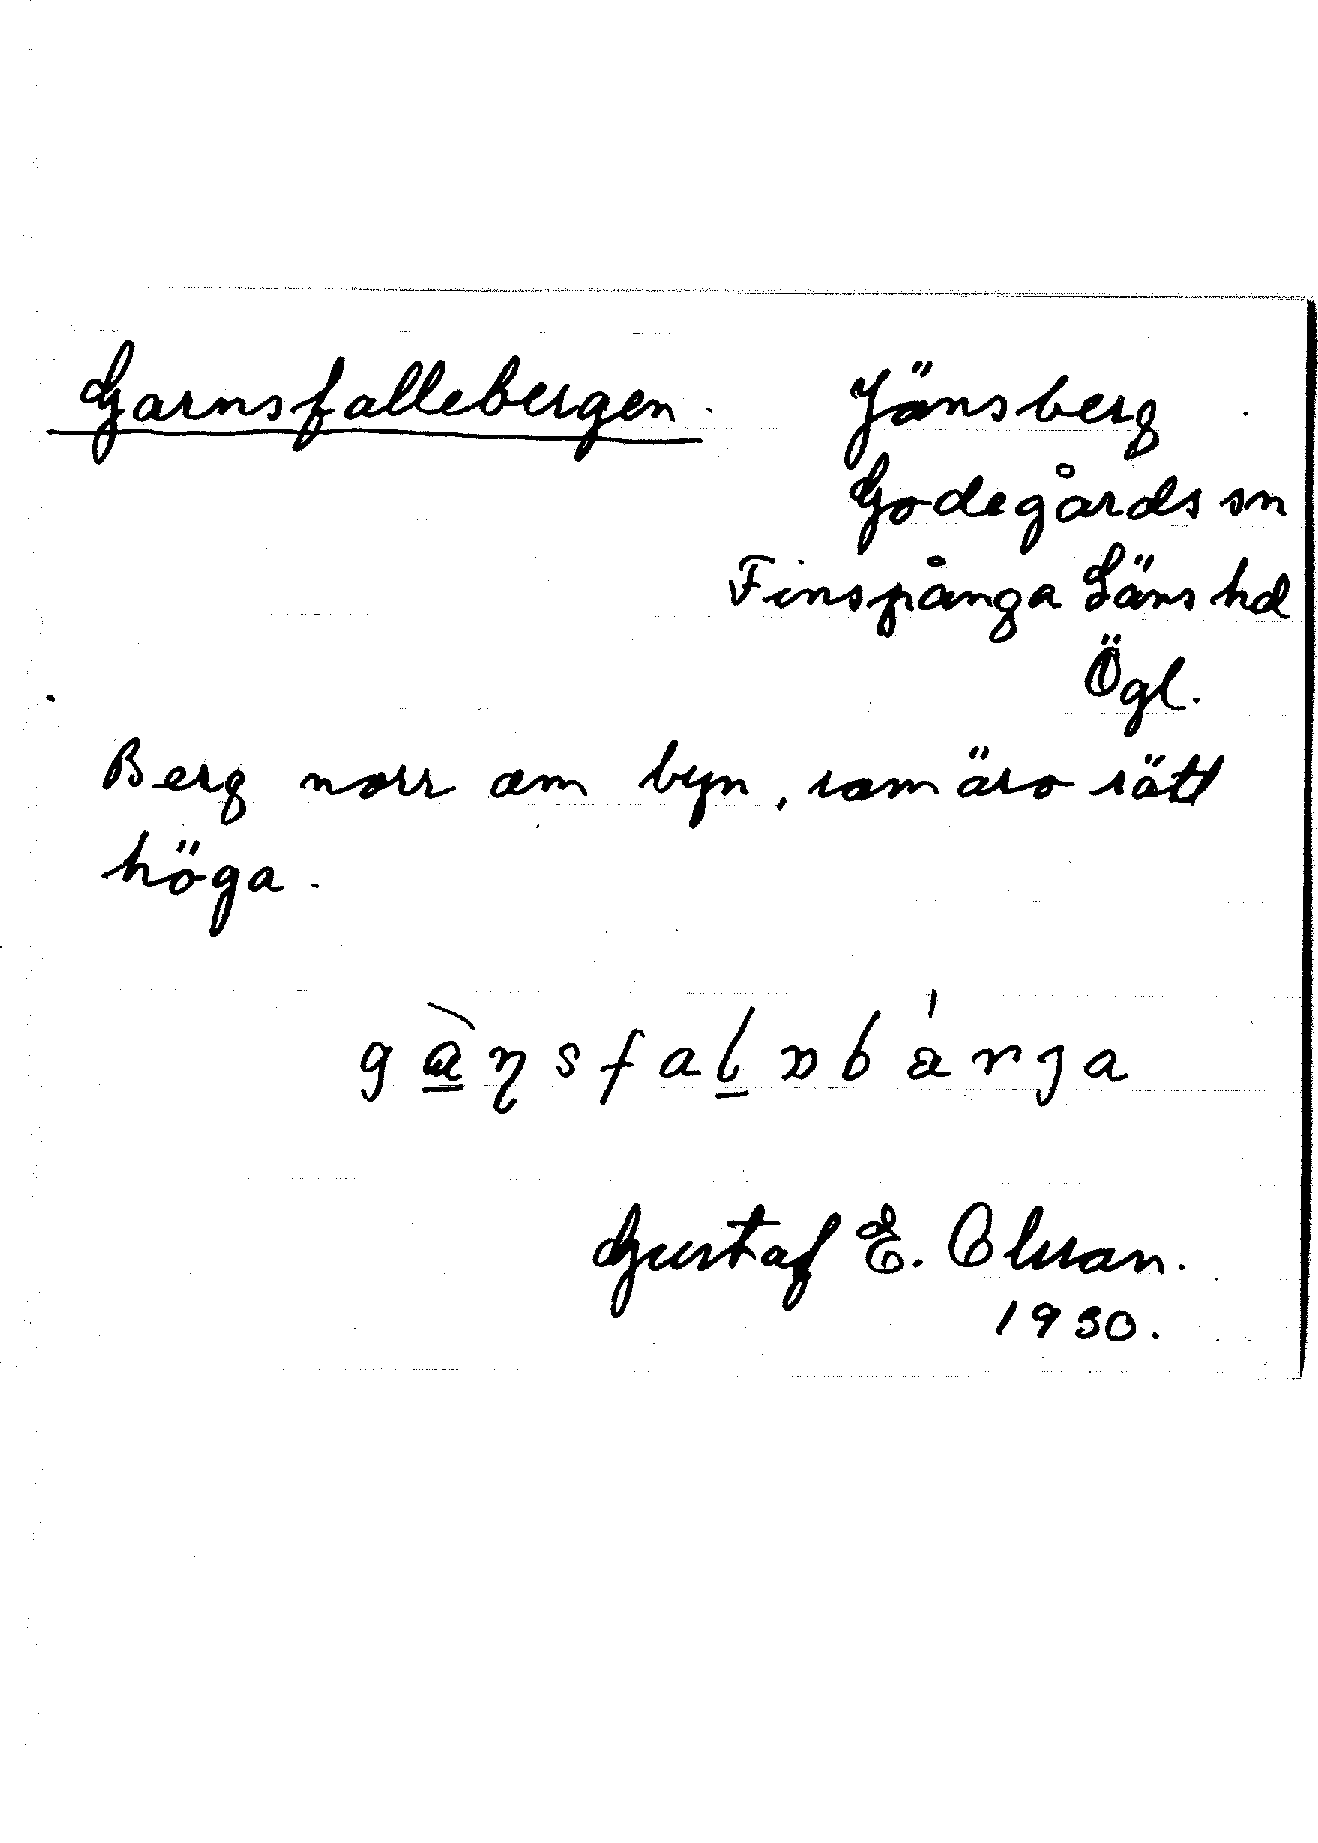 Garnsfallebergen. Jänsberg
Godegårds sn
Finspånga Läns hd
Ögl.
Berg norr om byn, som äro rätt
höga.
Gustaf E. Olsson.
1930.